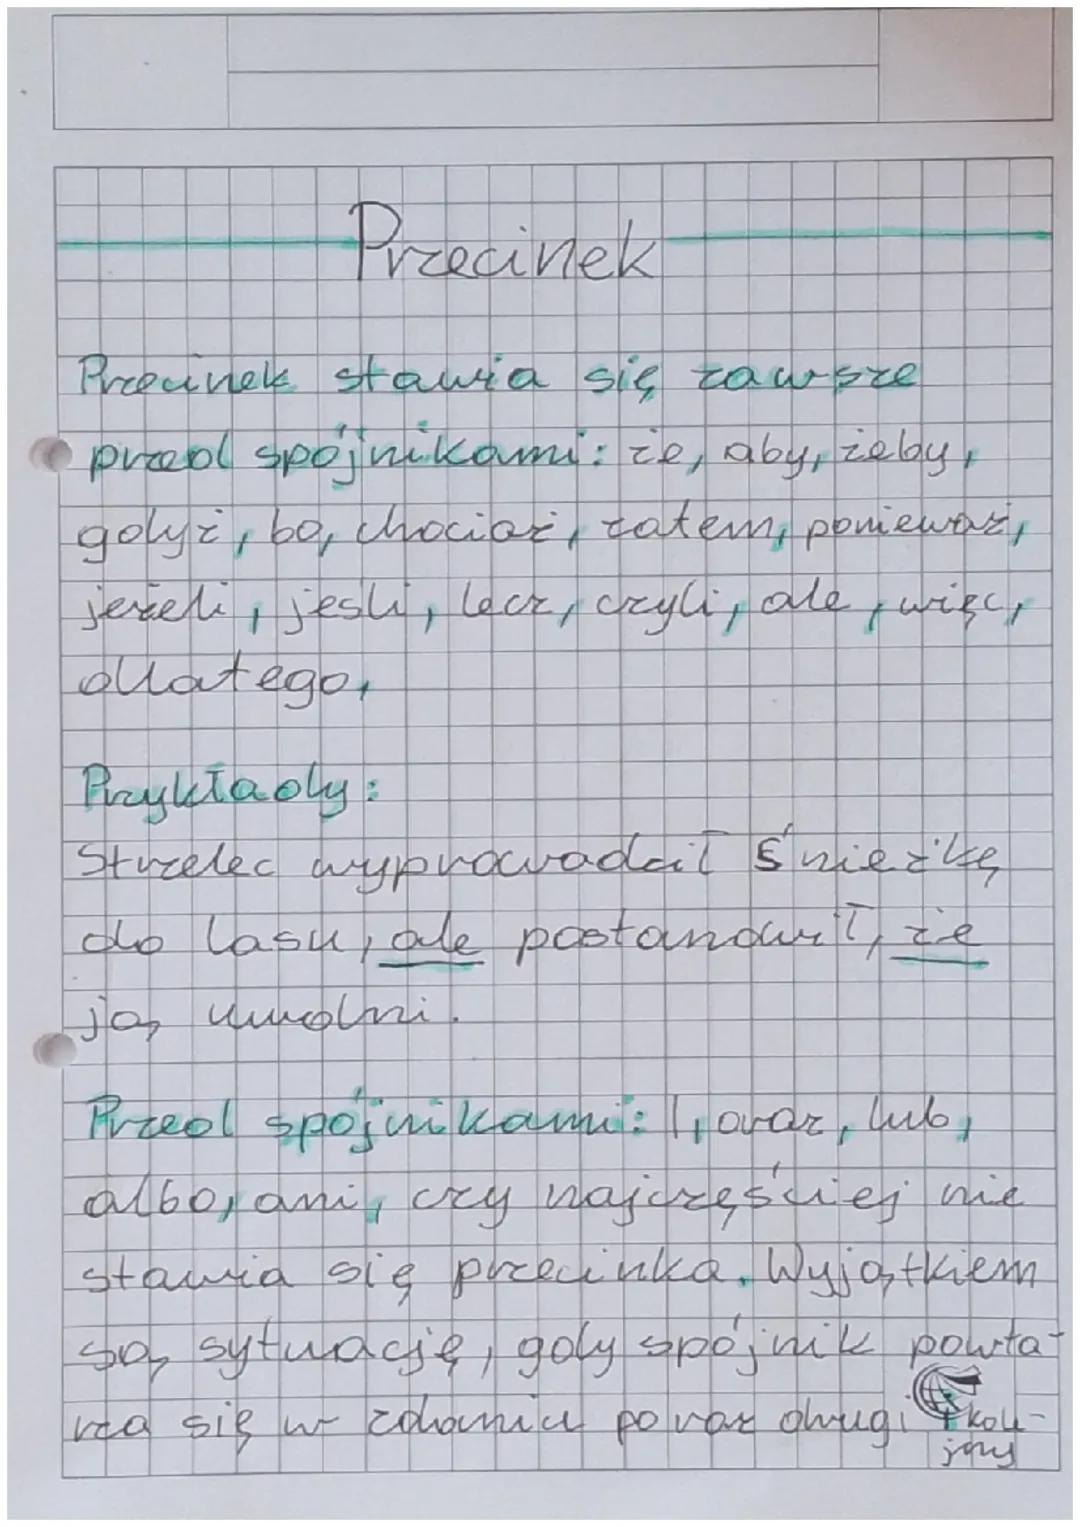 Przecinek
Przecinek stawia się zawsze
przed spójnikami: że, aby, żeby,
gdyż, bo, chociaż, zatem, ponieważ,
jeżeli, jeśli, lecz, czyli, ale, więc,
dlatego,
Przykłady:
Strzelec wyprowadził Śnieżkę
do lasu, ale postanowił, że
ją uwolni.
Przed spójnikami: I, oraz, lub,
albo, ani, czy najczęściej nie
stawia się przecinka. Wyjątkiem
są sytuację, gdy spójnik powta-
rza się w zdaniu po raz drugi i kole-
jny